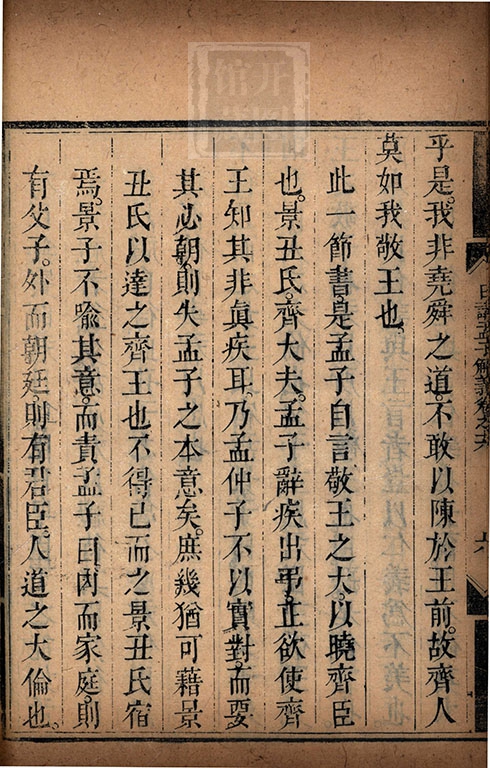 乎是。我非堯舜之道。不敢以陳於王前。故齊人
莫如我敬王也。
此一節書。是孟子自言敬王之大。以曉齊臣
也。景丑氏。齊大夫。孟子辭疾出弔。正欲使齊
王知其非真疾耳。乃孟仲子不以實對。而要
其必朝。則失孟子之本意矣。庶幾猶可藉景
丑氏以達之齊王也。不得已而之景丑氏宿
焉。景子不喻其意。而責孟子曰。內而家庭。則
有父子。外而朝廷。則有君臣。人道之大倫也。
日講孟子解義卷之十六
六